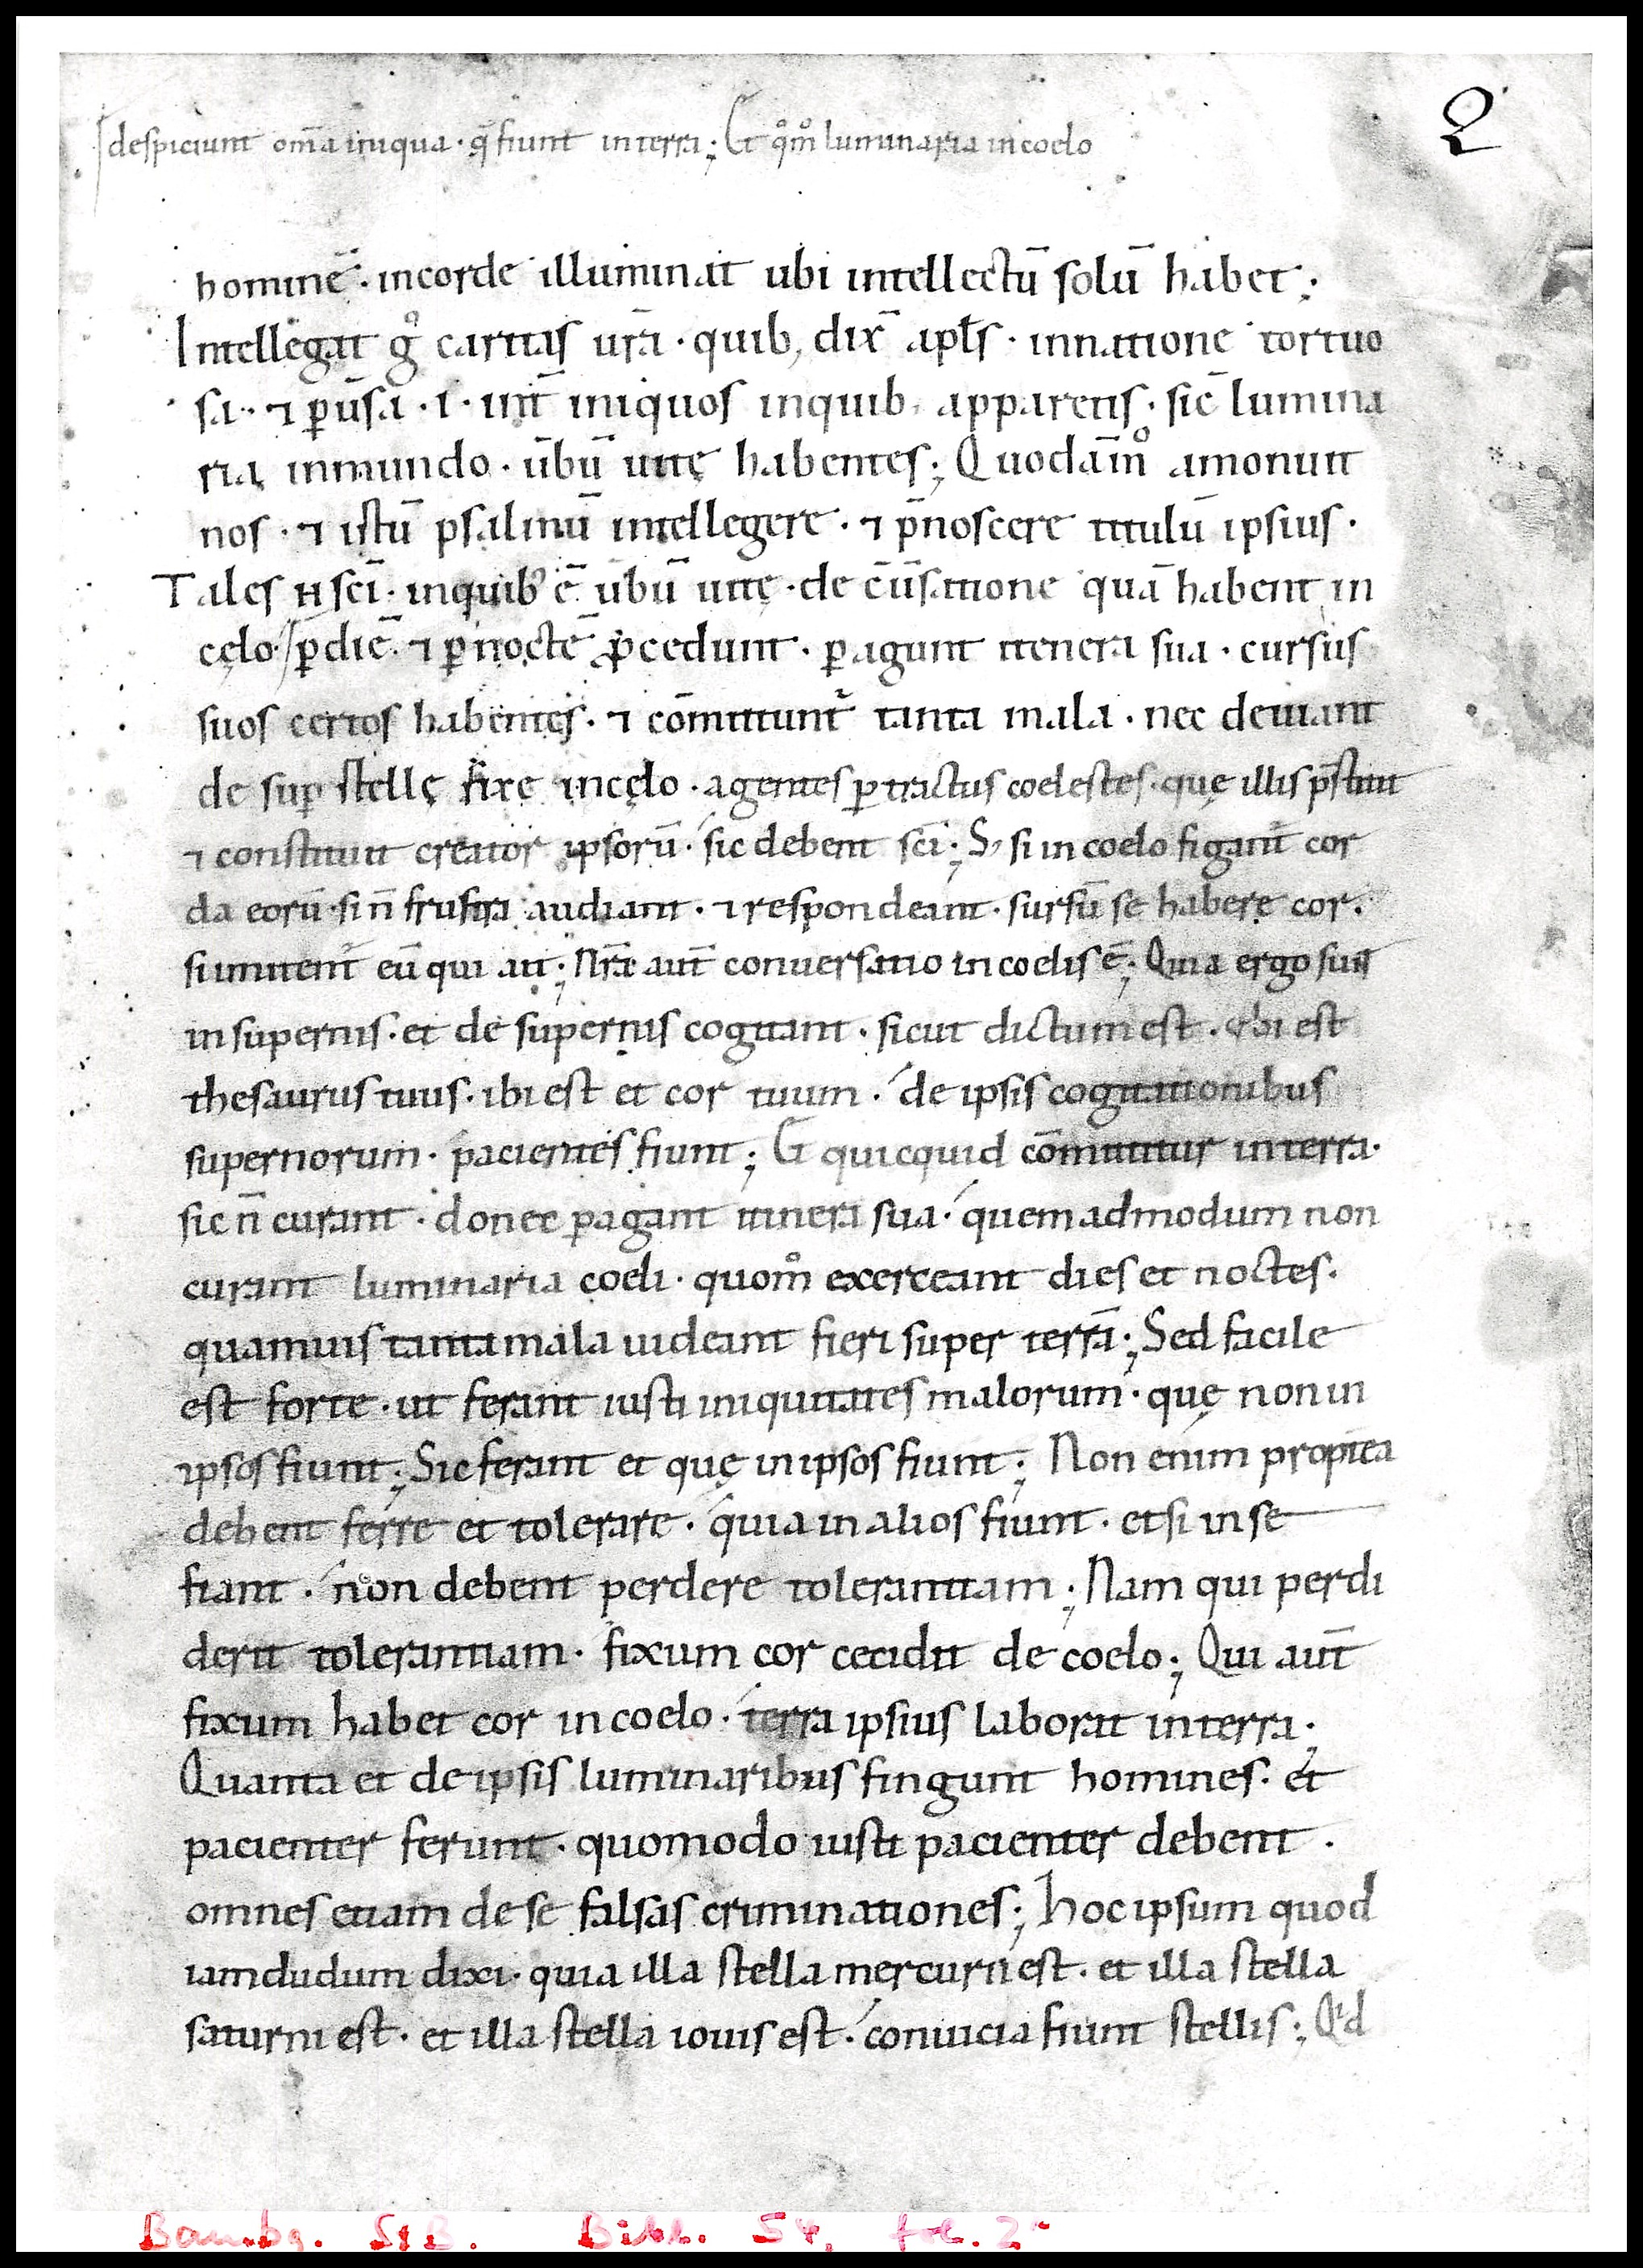 2
despiciunt om̄a iniqua · q̄ fiunt in terra; Et qm̊ luminaria in coelo
hominē · incorde illuminat ubi intellectū solū habet;
Intellegat g̊ caritas ur̄a · quib; dix̄ apl̄s · in natione tortuo
sa · ⁊ ꝑuēsa · i · int̄ iniquos inquib; apparetis · sic̄ lumina
ria inmundo · ūbū uitę habentes; Quodām̊ amonuit
nos · ⁊ istū psalmū intellegere · ⁊ p̄noscere titulū ipsius ·
Tales n̄ sc̄i · inquib; ē ūbū uitę · de c̄ūsatione quā habent in
cęlo · / ꝑ diē · ⁊ ꝑ noctē ꝓcedunt · ꝑagunt itenera sua · cursus
suos certos habentes · ⁊ cōmittunt᷑ tanta mala · nec deuiant
de suꝑ stellę fixe incęlo · agentes ꝑ tractus coelestes · quę illis p̄stitit
⁊ constituit creator ipsorū · sic debent sc̄i; S; si in coelo figant᷑ cor
da eorū · si n̄ frustra audiant · ⁊ respondeant · sursū se habere cor ·
si imitent᷑ eū qui ait; Nr̄a aut̄ conuersatio in coelis ē; Quia ergo sunt
in supernis · et de supernis cogitant · sicut dictum est · ubi est
thesaurus tuus · ibi est et cor tuum · de ipsis cogitationibus
supernorum · pacientes fiunt; Et quicquid cōmittitur in terra ·
sic n̄ curant · donec ꝑagant itinera sua · quemadmodum non
curant luminaria coeli · quom̊ exerceant dies et noctes ·
quamuis tanta mala uideant fieri super terrā; Sed facile
est forte · ut ferant iusti iniquitates malorum · quę non in
ipsos fiunt; Sic ferant et quę in ipsos fiunt; Non enim proptea
debent ferre et tolerare · quia in alios fiunt · etsi in se
fiant · non debent perdere tolerantiam; Nam qui perdi
derit tolerantiam · fixum cor cecidit de coelo; Qui aut̄
fixum habet cor in coelo · terra ipsius laborat in terra;
Quanta et de ipsis luminaribus fingunt homines · et
pacienter ferunt · quomodo iusti pacienter debent ·
omnes etiam de se falsas criminationes; hoc ipsum quod
iamdudum dixi · quia illa stella mercurii est · et illa stella
saturni est · et illa stella iouis est · conuicia fiunt stellis; Qd
Bambg. StB. Bibl. 54, fol. 2r